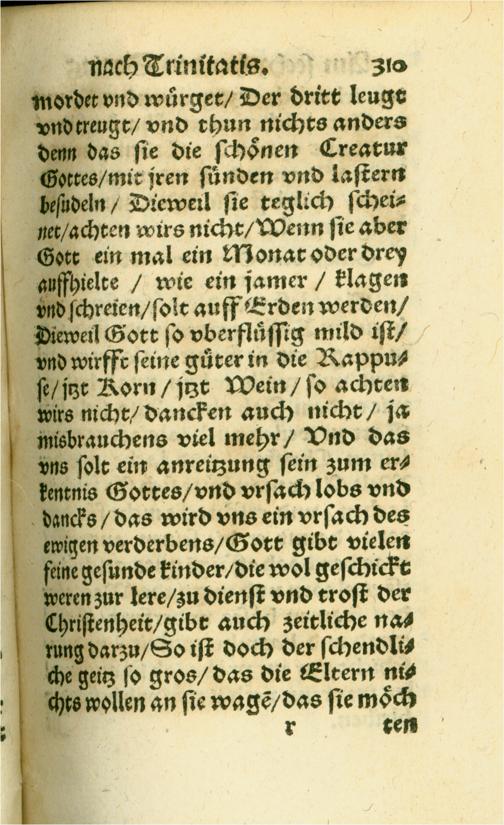 nach Trinitatis. 310
mordet vnd würget/ Der dritt leugt
vnd treugt/ vnd thun nichts anders
denn das sie die schönen Creatur
Gottes/mit jren sünden vnd lastern
besudeln/ Dieweil sie teglich schei⸗
net/achten wirs nicht/Wenn sie aber
Gott ein mal ein Monat oder drey
auffhielte / wie ein jamer / klagen
vnd schreien/solt auff Erden werden/
Dieweil Gott so vberflüssig mild ist/
vnd wirfft seine güter in die Rappu⸗
se/jtzt Korn/ jtzt Wein/so achten
wirs nicht/ dancken auch nicht/ ja
misbrauchens viel mehr/ Vnd das
vns solt ein anreitzung sein zum er⸗
kentnis Gottes/vnd vrsach lobs vnd
dancks/das wird vns ein vrsach des
ewigen verderbens/Gott gibt vielen
feine gesunde kinder/die wol geschickt
weren zur lere/zu dienst vnd trost der
Christenheit/gibt auch zeitliche na⸗
rung darzu/So ist doch der schendli⸗
che geitz so gros/das die Eltern ni⸗
chts wollen an sie wagẽ/das sie möch
r ten